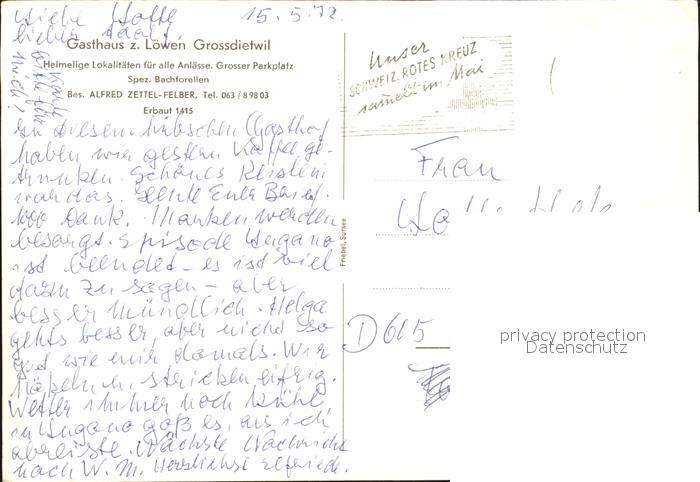 Liebe Lotte 15.5.72.
lieber
Gasthaus z. Löwen Grossdietwil
Heimelige Lokalitäten für alle Anlässe. Grosser Parkplatz
Spez. Bachforellen
Bes. ALFRED ZETTEL-FELBER, Tel. 063 / 8 98 03
Erbaut 1415
In diesem hübschen Gasthof
haben wir gestern Kaffee ge-
trunken. Schönes
war das. Heute Euer Brief.
100 Dank. Marken werden
besorgt. Episode Lugano
ist beendet – es ist viel
dazu zu sagen – aber
besser mündlich. Helga
gehts besser, aber nicht so
gut wie mir damals. Wir
u. stricken eifrig.
Wetter immer noch kühl
in Lugano goß es, als ich
abreiste. Nächste Nachricht
nach W. M. Herzlichst Elfriede.
Unser
SCHWEIZ. ROTES KREUZ
sammelt im Mai
Frau
Friebel, Sursee
D 605
privacy protection
Datenschutz